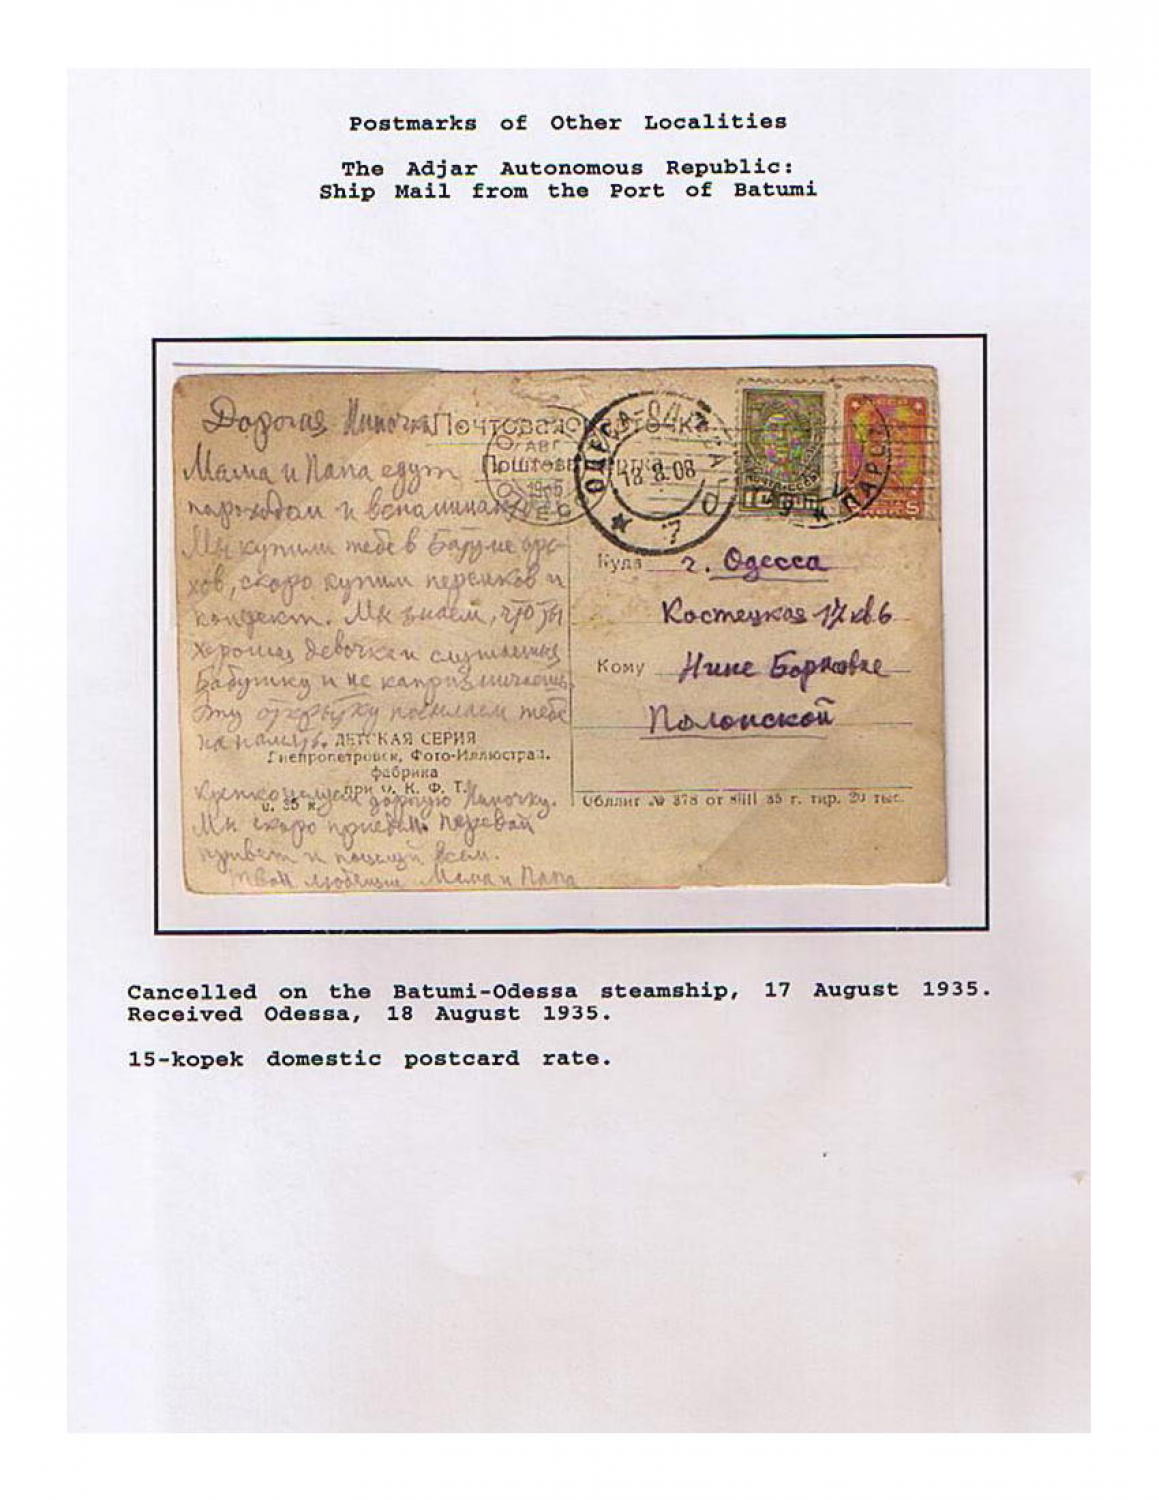 Postmarks of Other Localities
The Adjar Autonomous Republic:
Ship Mail from the Port of Batumi
Дорогая Ниночка
Почтовая карточка
Мама и Папа едут
пароходом и вспоминают
Мы купили тебе в Батуме оре-
хов, скоро купим персиков и
конфект. Мы знаем, что ты
хорошая девочка и слушаешь
Бабушку и не капризничаешь.
Эту открытку посылаем тебе
на память.
ДЕТСКАЯ СЕРИЯ
Днепропетровск, Фото-Иллюстрац.
фабрика
при о. К. Ф. Т.
ц. 35 к.
Крепко целуем дорогую Ниночку.
Мы скоро приедем. Передай
привет и поцелуй всем.
Твои любящие Мама и Папа
АВГ
ОДЕССА
18 8.08
7
Куда г. Одесса
Костецкая 17 кв 6
Кому Нине Борисовне
Полонской
Обллит № 378 от 8/III 35 г. тир. 20 тыс.
Cancelled on the Batumi-Odessa steamship, 17 August 1935.
Received Odessa, 18 August 1935.
15-kopek domestic postcard rate.